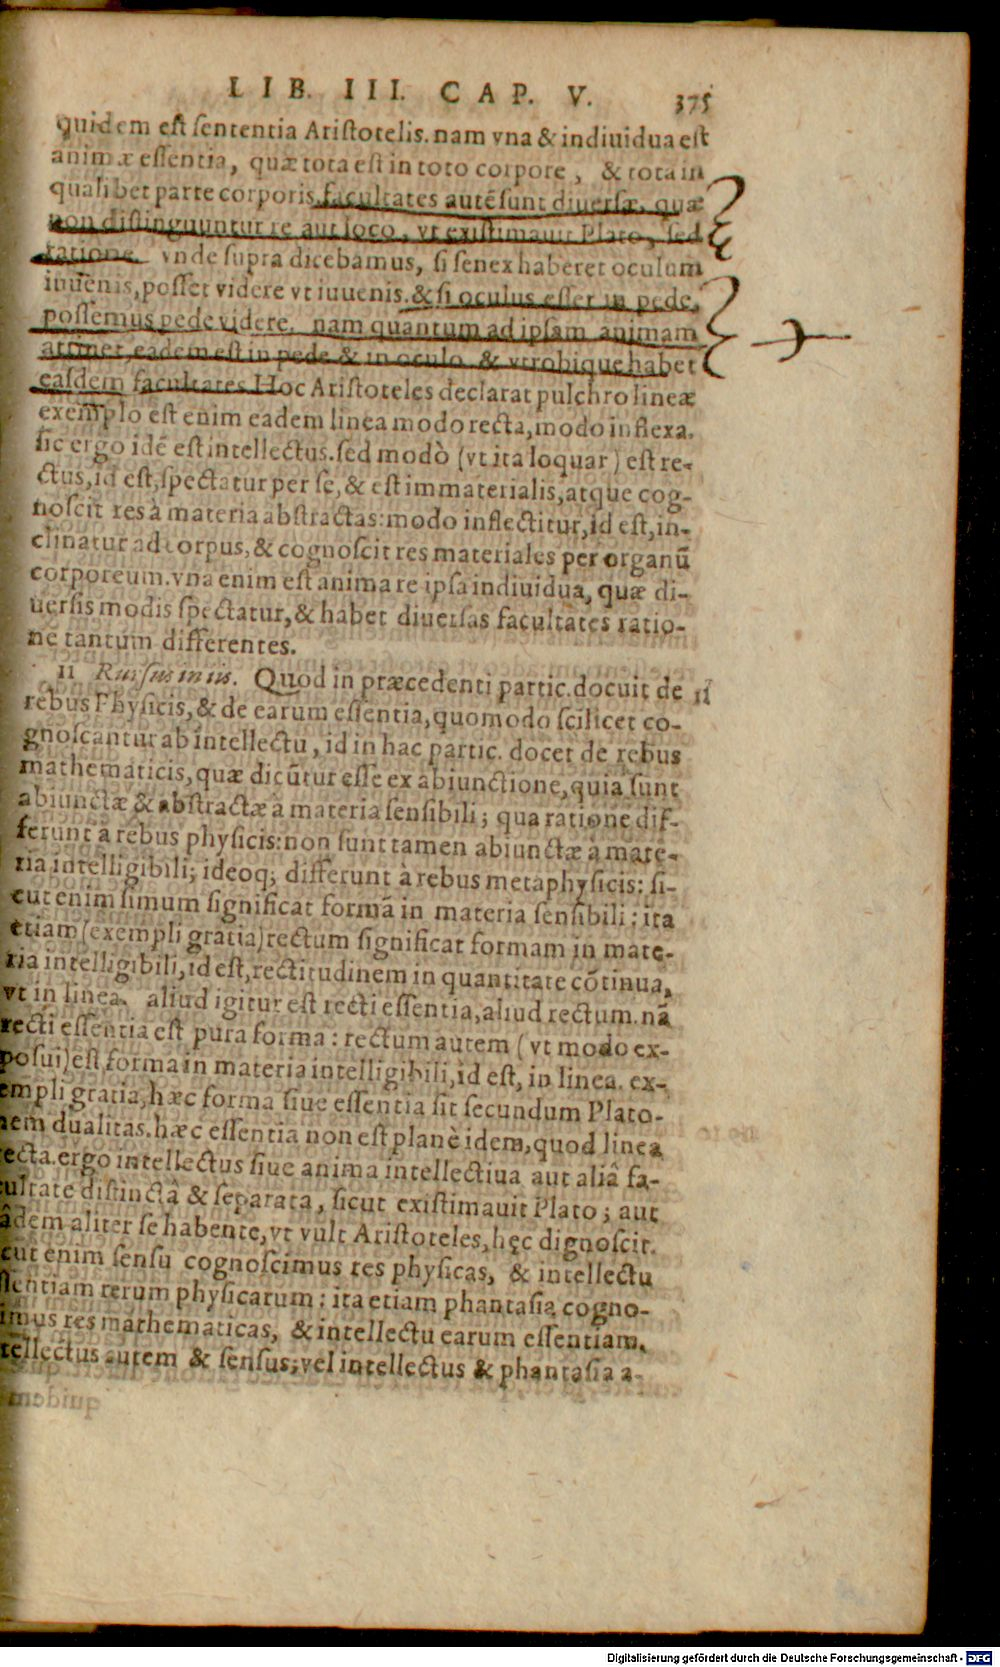 LIB. III. CAP. V. 375
quidem est sententia Aristotelis. nam vna & indiuidua est
animæ essentia, quæ tota est in toto corpore, & tota in
qualibet parte corporis. facultates autē sunt diuersæ, quæ
non distinguuntur re aut loco, vt existimauit Plato, sed
ratione. vnde supra dicebamus, si senex haberet oculum
iuuenis, posset videre vt iuuenis. & si oculus esset in pede,
possemus pede videre. nam quantum ad ipsam animam
attinet, eadem est in pede & in oculo, & vtrobique habet
easdem facultates. Hoc Aristoteles declarat pulchro lineæ
exemplo est enim eadem linea modo recta, modo inflexa.
sic ergo idē est intellectus. sed modò (vt ita loquar) est re-
ctus, id est, spectatur per se, & est immaterialis, atque cog-
noscit res à materia abstractas: modo inflectitur, id est, in-
clinatur ad corpus, & cognoscit res materiales per organū
corporeum. vna enim est anima re ipsa indiuidua, quæ di-
uersis modis spectatur, & habet diuersas facultates ratio-
ne tantum differentes.
11 Rursus in iis. Quod in præcedenti partic. docuit de 11
rebus Physicis, & de earum essentia, quomodo scilicet co-
gnoscantur ab intellectu, id in hac partic. docet de rebus
mathematicis, quæ dicūtur esse ex abiunctione, quia sunt
abiunctæ & abstractæ à materia sensibili; qua ratione dif-
ferunt à rebus physicis: non sunt tamen abiunctæ à mate-
ria intelligibili; ideoq; differunt à rebus metaphysicis: si-
cut enim simum significat formā in materia sensibili: ita
etiam (exempli gratia) rectum significat formam in mate-
ria intelligibili, id est, rectitudinem in quantitate cōtinua,
vt in linea. aliud igitur est recti essentia, aliud rectum. nā
recti essentia est pura forma: rectum autem (vt modo ex-
posui) est forma in materia intelligibili, id est, in linea. ex-
empli gratia, hæc forma siue essentia sit secundum Plato-
nem dualitas. hæc essentia non est planè idem, quod linea
recta. ergo intellectus siue anima intellectiua aut aliâ fa-
cultate distinctâ & separata, sicut existimauit Plato; aut
âdem aliter se habente, vt vult Aristoteles, hęc dignoscit.
cut enim sensu cognoscimus res physicas, & intellectu
ssentiam rerum physicarum: ita etiam phantasia cogno-
imus res mathematicas, & intellectu earum essentiam.
tellectus autem & sensus, vel intellectus & phantasia a-
Digitalisierung gefördert durch die Deutsche Forschungsgemeinschaft - DFG